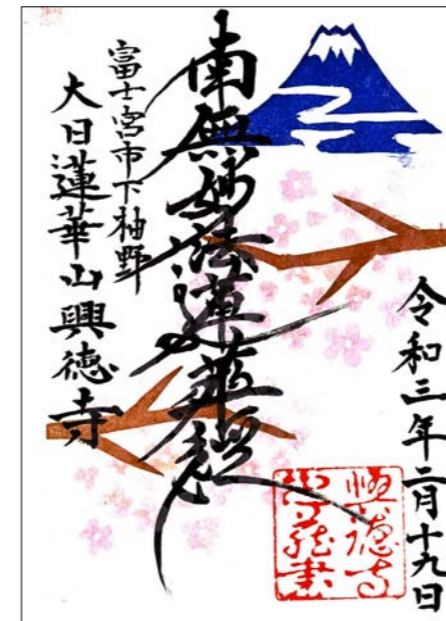 令和三年二月十九日
南無妙法蓮華経
富士宮市下柚野
大日蓮華山興徳寺